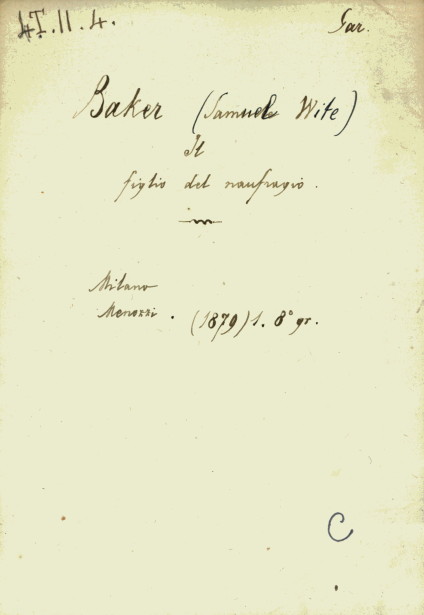 4T.11.4.
Gar.
Baker (Samuel Wite)
Il
figlio del naufragio.
Milano
Menozzi. (1879) 1. 8° gr.
C